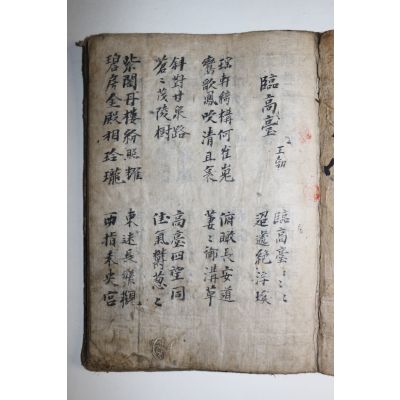 臨高臺
王勃
臨高臺ミミミ
迢遞絕浮埃
瑤軒綺構何崔嵬
鸞歌鳳吹清且哀
俯瞰長安道
萋〻御溝草
斜對甘泉路
蒼〻茂陵樹
高臺四望同
佳氣鬱葱〻
紫閣丹樓紛照耀
碧房金殿相玲瓏
東迷長樂觀
西指未央宮